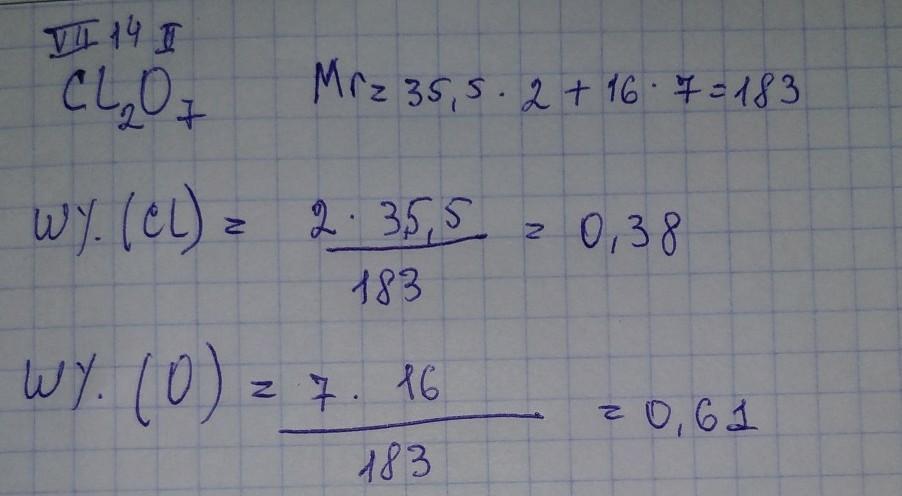 VII 14 II
Cl₂O₇ Mr = 35,5 · 2 + 16 · 7 = 183
W%. (Cl) = 2 · 35,5 / 183 = 0,38
W%. (O) = 7 · 16 / 183 = 0,61